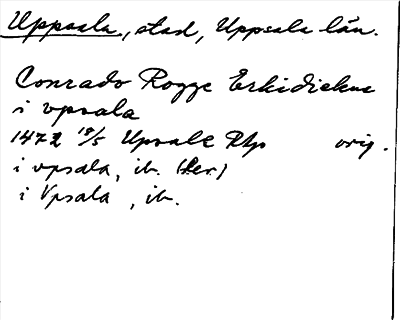 Uppsala, stad, Uppsala län.
Conrado Rogge Erkidiekne
i vpsala
1472 18/5 Upsale Rtp orig.
i vpsala, ib. (Per.)
i Vpsala, ib.